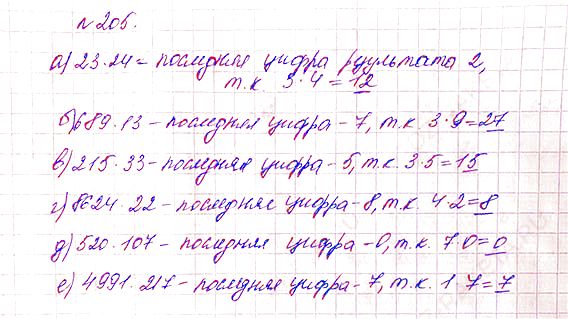 № 205.
а) 23·24 = последняя цифра результата 2,
т.к 3·4 = 12
б) 689·13 – последняя цифра – 7, т.к. 3·9 = 27
в) 215·33 – последняя цифра – 5, т.к. 3·5 = 15
г) 8624·22 – последняя цифра – 8, т.к. 4·2 = 8
д) 520·107 – последняя цифра – 0, т.к. 7·0 = 0
е) 4991·217 – последняя цифра – 7, т.к. 1·7 = 7